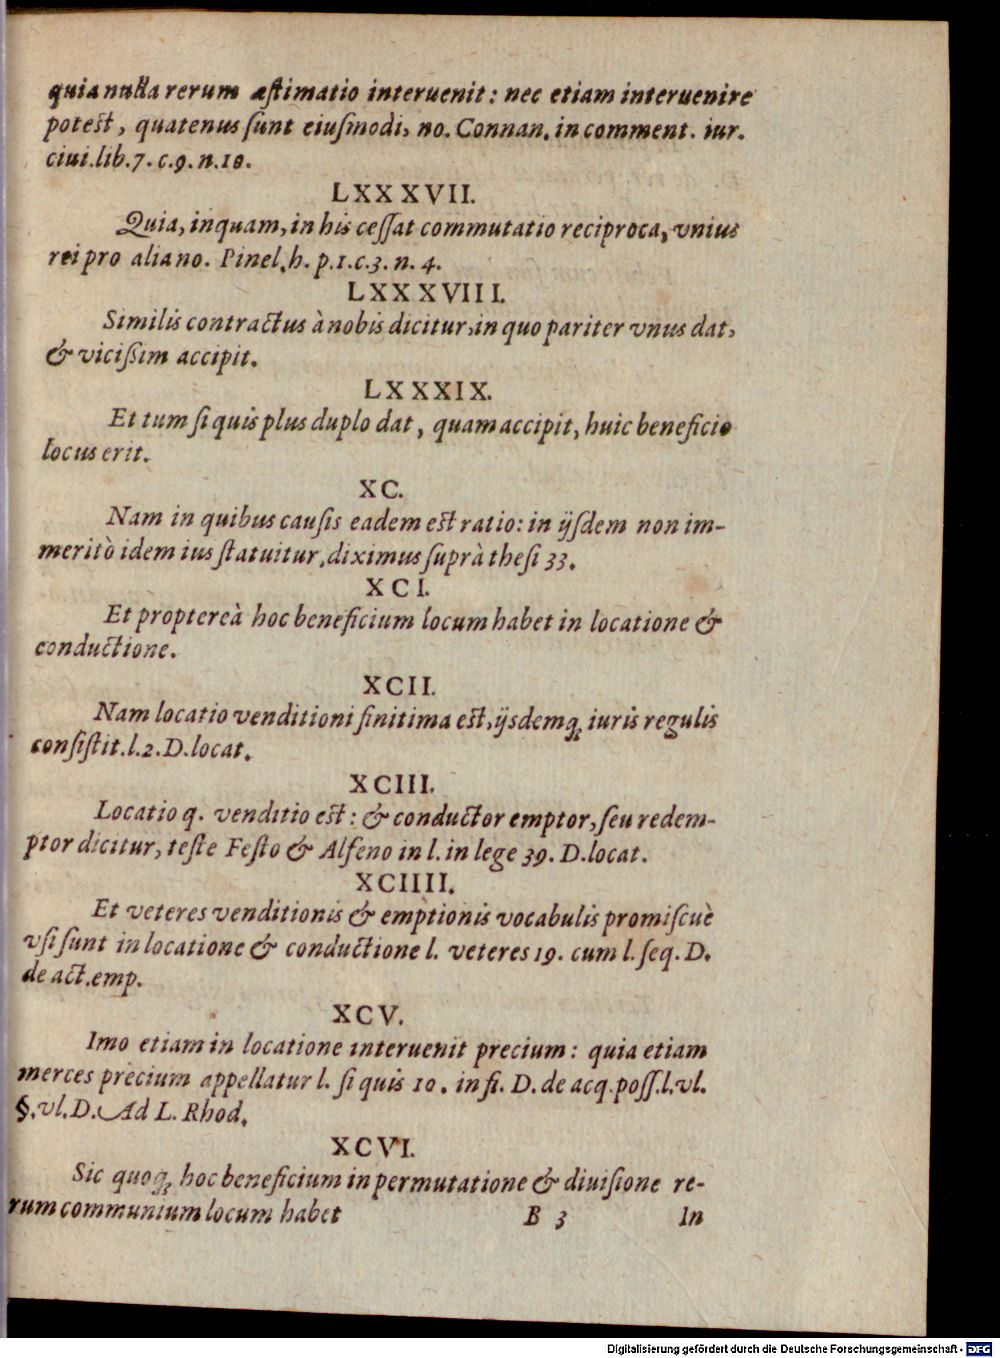 quia nulla rerum æſtimatio interuenit: nec etiam interuenire
poteſt, quatenus ſunt eiuſmodi, no. Connan. in comment. iur.
ciui. lib. 7. c. 9. n. 18.
LXXXVII.
Quia, inquam, in his ceſſat commutatio reciproca, vnius
rei pro alia no. Pinel. h. p. 1. c. 3. n. 4.
LXXXVIII.
Similis contractus à nobis dicitur, in quo pariter vnus dat,
& viciſsim accipit.
LXXXIX.
Et tum ſi quis plus duplo dat, quam accipit, huic beneficio
locus erit.
XC.
Nam in quibus cauſis eadem eſt ratio: in ijſdem non im-
meritò idem ius ſtatuitur, diximus ſuprà theſi 33.
XCI.
Et proptereà hoc beneficium locum habet in locatione &
conductione.
XCII.
Nam locatio venditioni finitima eſt, ijsdemq́; iuris regulis
conſiſtit. l. 2. D. locat.
XCIII.
Locatio q. venditio eſt: & conductor emptor, ſeu redem-
ptor dicitur, teſte Feſto & Alfeno in l. in lege 39. D. locat.
XCIIII.
Et veteres venditionis & emptionis vocabulis promiſcuè
vſi ſunt in locatione & conductione l. veteres 19. cum l. ſeq. D.
de act. emp.
XCV.
Imo etiam in locatione interuenit precium: quia etiam
merces precium appellatur l. ſi quis 10. in fi. D. de acq. poſſ. l. vl.
§. vl. D. Ad L. Rhod.
XCVI.
Sic quoq; hoc beneficium in permutatione & diuiſione re-
rum communium locum habet
B 3 In
Digitalisierung gefördert durch die Deutsche Forschungsgemeinschaft - DFG